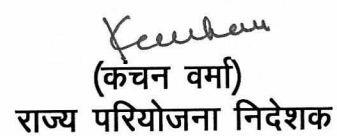 (कंचन वर्मा)
राज्य परियोजना निदेशक